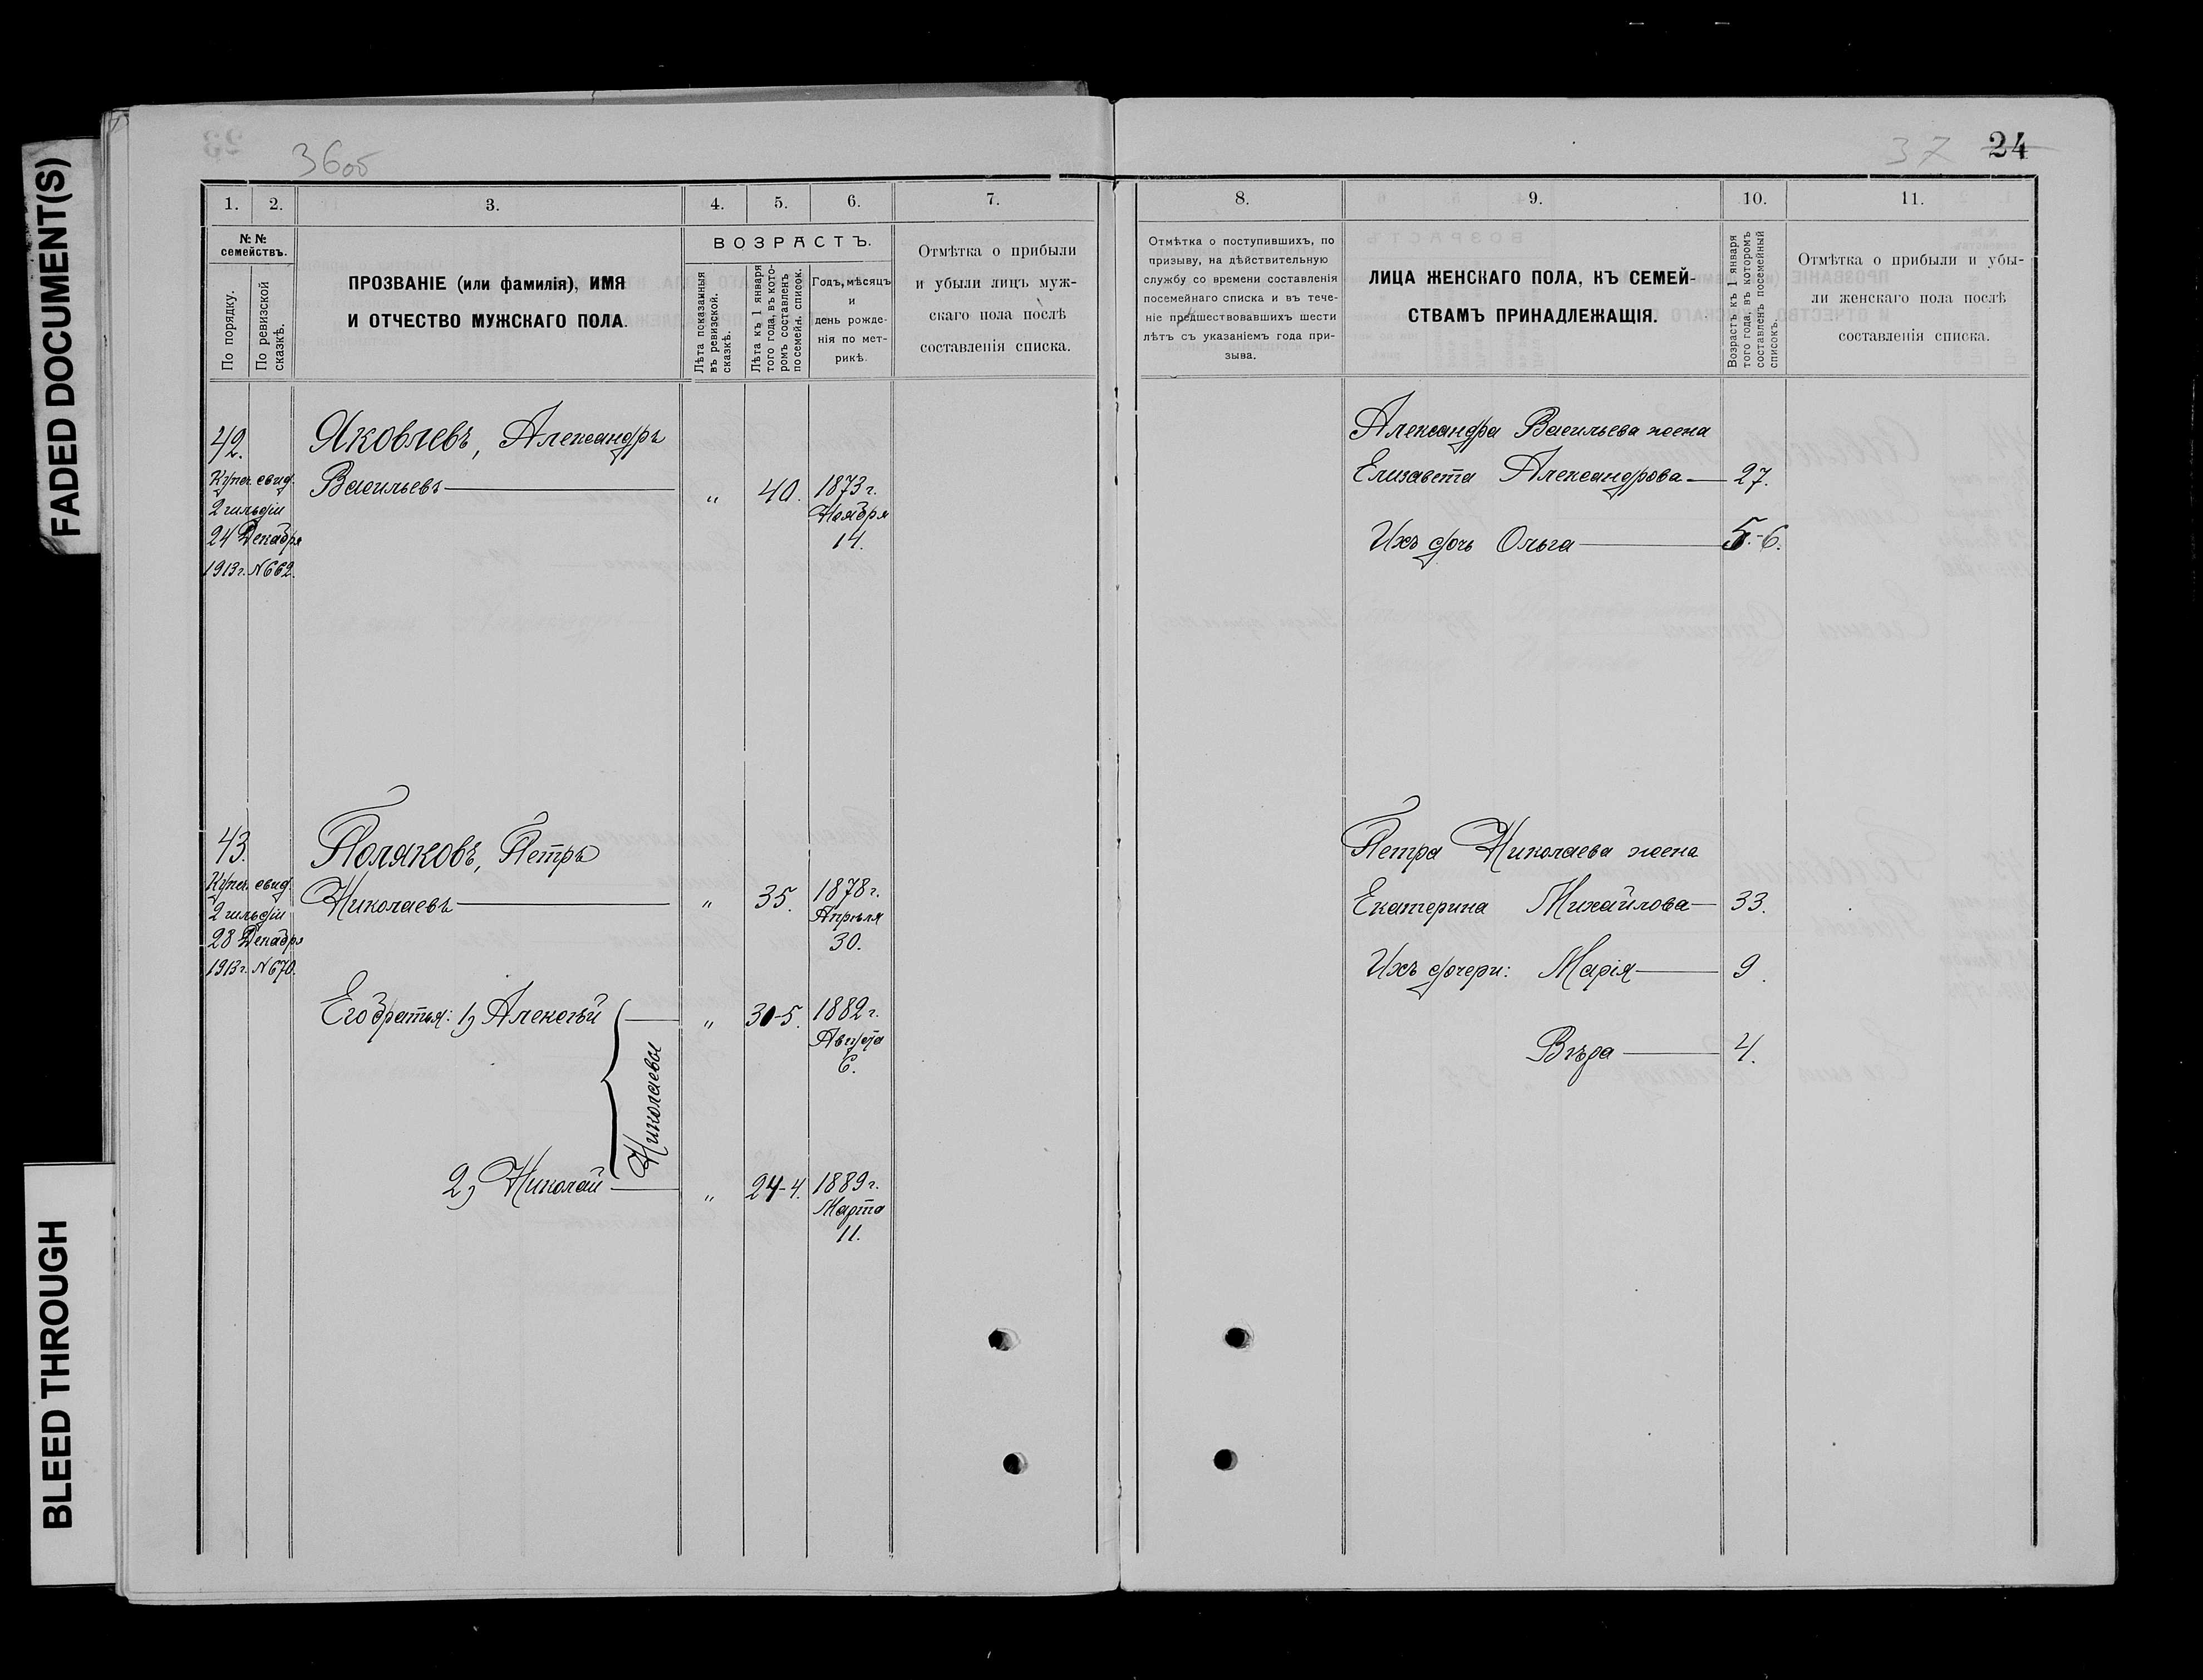 FADED DOCUMENT(S)
BLEED THROUGH
36об
1.
2.
3.
4.
5.
6.
7.
№ №
семействъ.
По порядку.
По ревизской
сказкѣ.
ПРОЗВАНІЕ (или фамилія), ИМЯ
И ОТЧЕСТВО МУЖСКАГО ПОЛА.
ВОЗРАСТЪ.
Лѣта показанныя
въ ревизской.
сказкѣ.
Лѣта къ 1 января
того года, въ кото-
ромъ составленъ
посемейн. список.
Годъ, мѣсяцъ
и
день рожде-
нія по мет-
рикѣ.
Отмѣтка о прибыли
и убыли лицъ муж-
скаго пола послѣ
составленія списка.
42.
Купеч. свид.
2 гильдіи
24 Декабря
1913 г. N 662.
Яковлевъ, Александръ
Васильевъ
„ 40. 1873 г.
Ноября
14.
43.
Купеч. свид.
2 гильдіи
28 Декабря
1913 г. N 670.
Поляковъ, Петръ
Николаевъ
„ 35. 1878 г.
Апрѣля
30.
Его братья: 1) Алексѣй
„ 30-5. 1882 г.
Августа
6.
Николаевы
2) Николай
„ 24-4. 1889 г.
Марта
11.
37 24
8.
9.
10.
11.
Отмѣтка о поступившихъ, по
призыву, на дѣйствительную
службу со времени составленія
посемейнаго списка и въ тече-
ніе предшествовавшихъ шести
лѣтъ съ указаніемъ года при-
зыва.
ЛИЦА ЖЕНСКАГО ПОЛА, КЪ СЕМЕЙ-
СТВАМЪ ПРИНАДЛЕЖАЩІЯ.
Возрастъ къ 1 января
того года, въ которомъ
составленъ посемейный
списокъ.
Отмѣтка о прибыли и убы-
ли женскаго пола послѣ
составленія списка.
Александра Васильева жена
Елизавета Александрова 27.
Ихъ дочь Ольга 5.-6.
Петра Николаева жена
Екатерина Михайлова 33.
Ихъ дочери: Марія 9.
Вѣра 4.